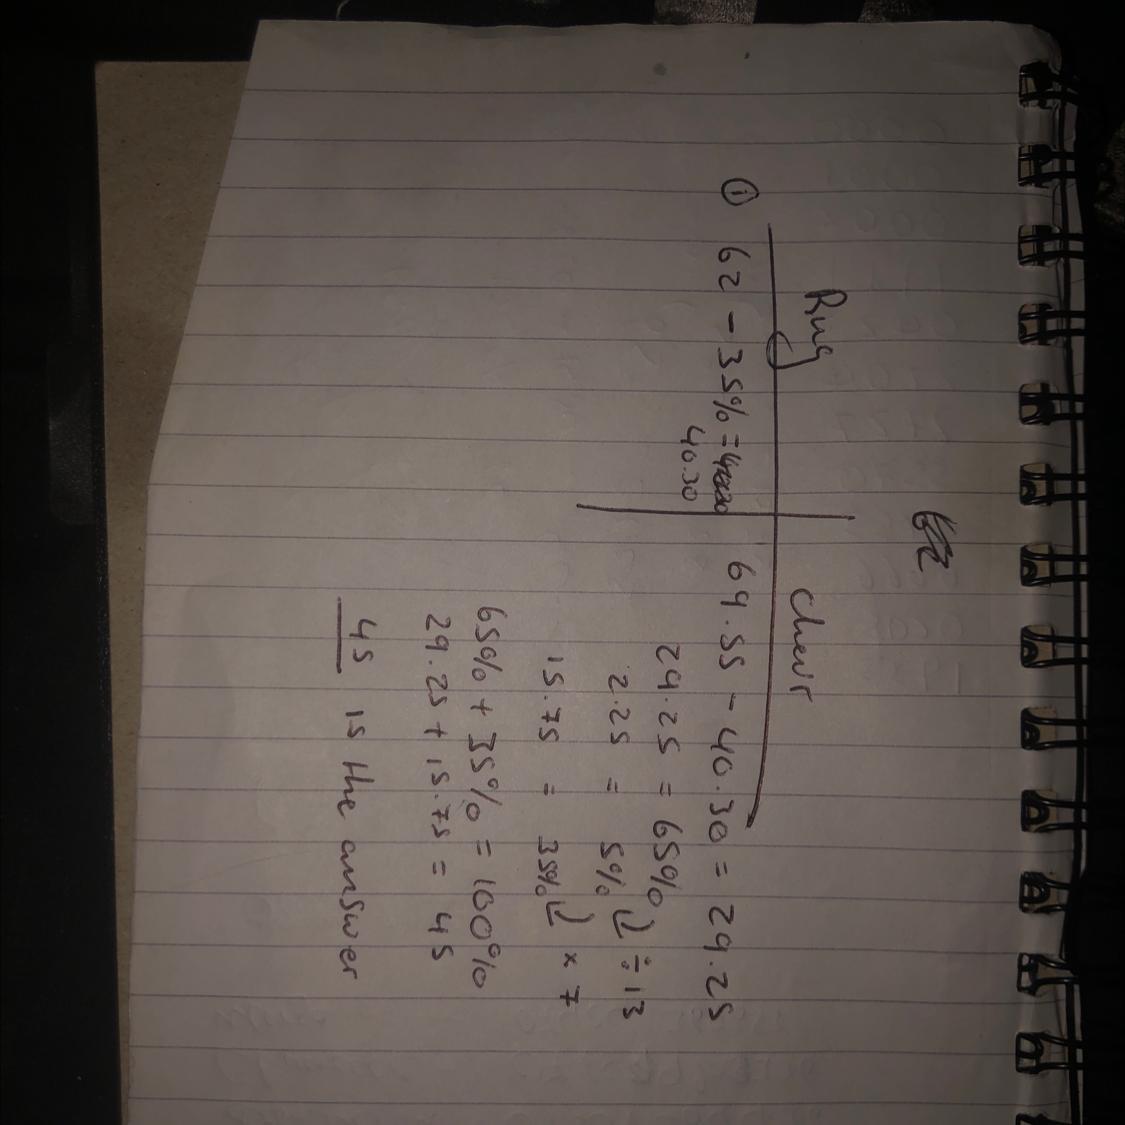 Rug
Chair
① 62 - 35% =
40.30
69.55 - 40.30 = 29.25
29.25 = 65%
÷ 13
2.25 = 5%
× 7
15.75 = 35%
65% + 35% = 100%
29.25 + 15.75 = 45
45 is the answer